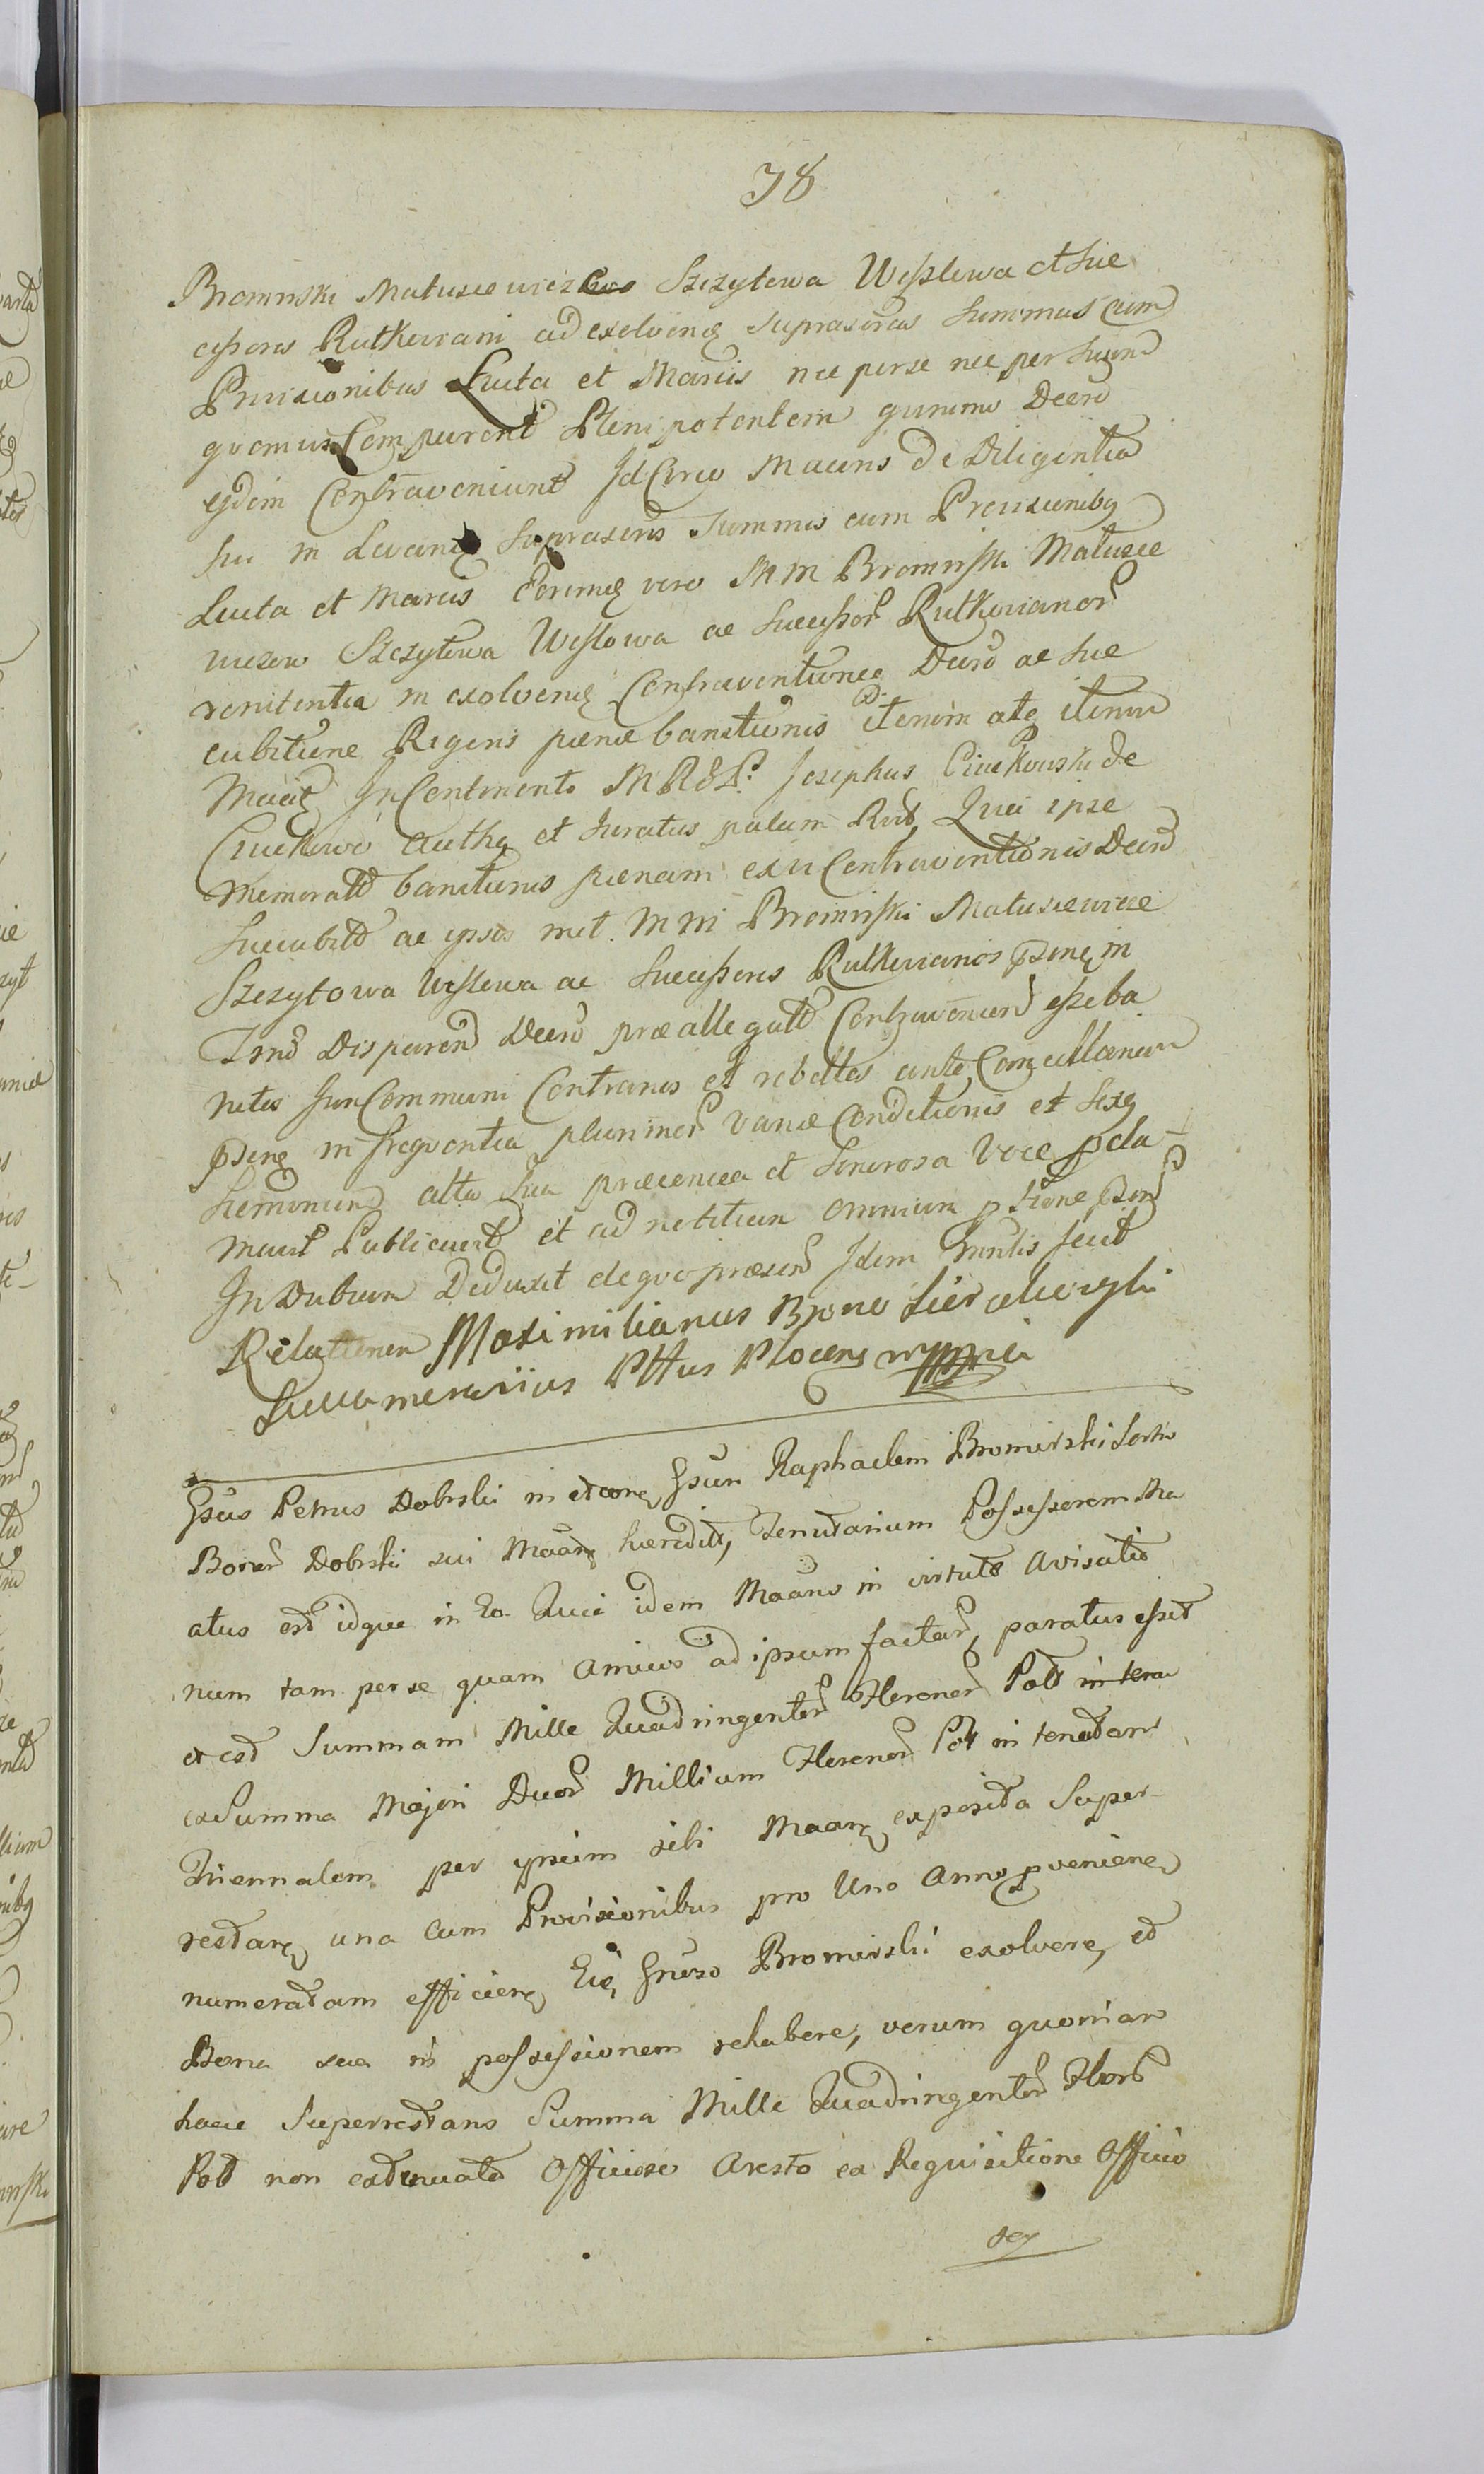 78
Bromirski Matusiewiczowa Szczytowa Wesslowa et Suc
cessores Rutkoviani ad exolvenq suprascrtas Summas cum
Provisionibus Lucta et Marcis nec per se nec per suum
quemvis Comparent Plenipotentem quinimo Decrd
ejdem Contraveniunt Id Circo Macens de Diligentia
sui in Levanq suprascrtis Summis cum Provisionibq
Lucta et Marcis Eorumq vero MM Bromirski Matusie
wiczow Szczytowa Wesslowa ac Successor Rutkovianor
renitentia in exolvenq Contraventioneq Decrd ac Suc
cubitione Regens pœnæ banitionis iterum atq iterum
Maciq In Continenti M R G L Josephus Ciuckowski de
Ciuckowo Authq et Juratus palam Rndt Quia ipse
memoratd banitionis pœnam ex vi Contraventionis Decrd
Succubitd ac ipsos met MM Bromirski Matusiewicze
Szczytowa Wesslowa ac Successores Rutkovianos psenq in
Tend Disparend Decrd præallegatd Contraveniend esse ba
nitos Juri Communi Contrarios et rebelles ante Cancellariam
psenq in frequentia plurimor variæ Conditionis et Sexq
hominum alta sua præconica et Sonorosa Voce pcla
mavit Publicavit et ad notitiam omnium ptione psend
Indubiam Deduxit de quo præsend Idem Mnrlis fecit
Relationem Maximilianus Bpno Sierakowski
Succamerarius Pttus Plocens mppria
Gsus Petrus Dobrski in et conq Gsum Raphaelem Bromirski Sortis
Bonor Dobrski sui Maanq hæreditt, Tenutarium Possessorem Ma
atus est idque in Eo Quia idem Maans in virtute Avisatio
num tam per se quam Amicos ad ipsum factar, paratus esset
et est Summam Mille Quadringentor Florenor Pold in tenu
ex Summa Majori Duor Millium Florenor Pol in tenutam
Triennalem per ipsum sibi Maanq exposita Super
restanq una cum Provisionibus pro Uno Anno pvenienq
numeratam efficienq Eiq Gnroso Bromirski exolvere, et
Bona sua in possessionem rehabere, verum quoniam
hæc Superrestans Summa Mille Quadringentor Flord
Pold non extenuatd Officiose Aresto ex Requisitione Officio